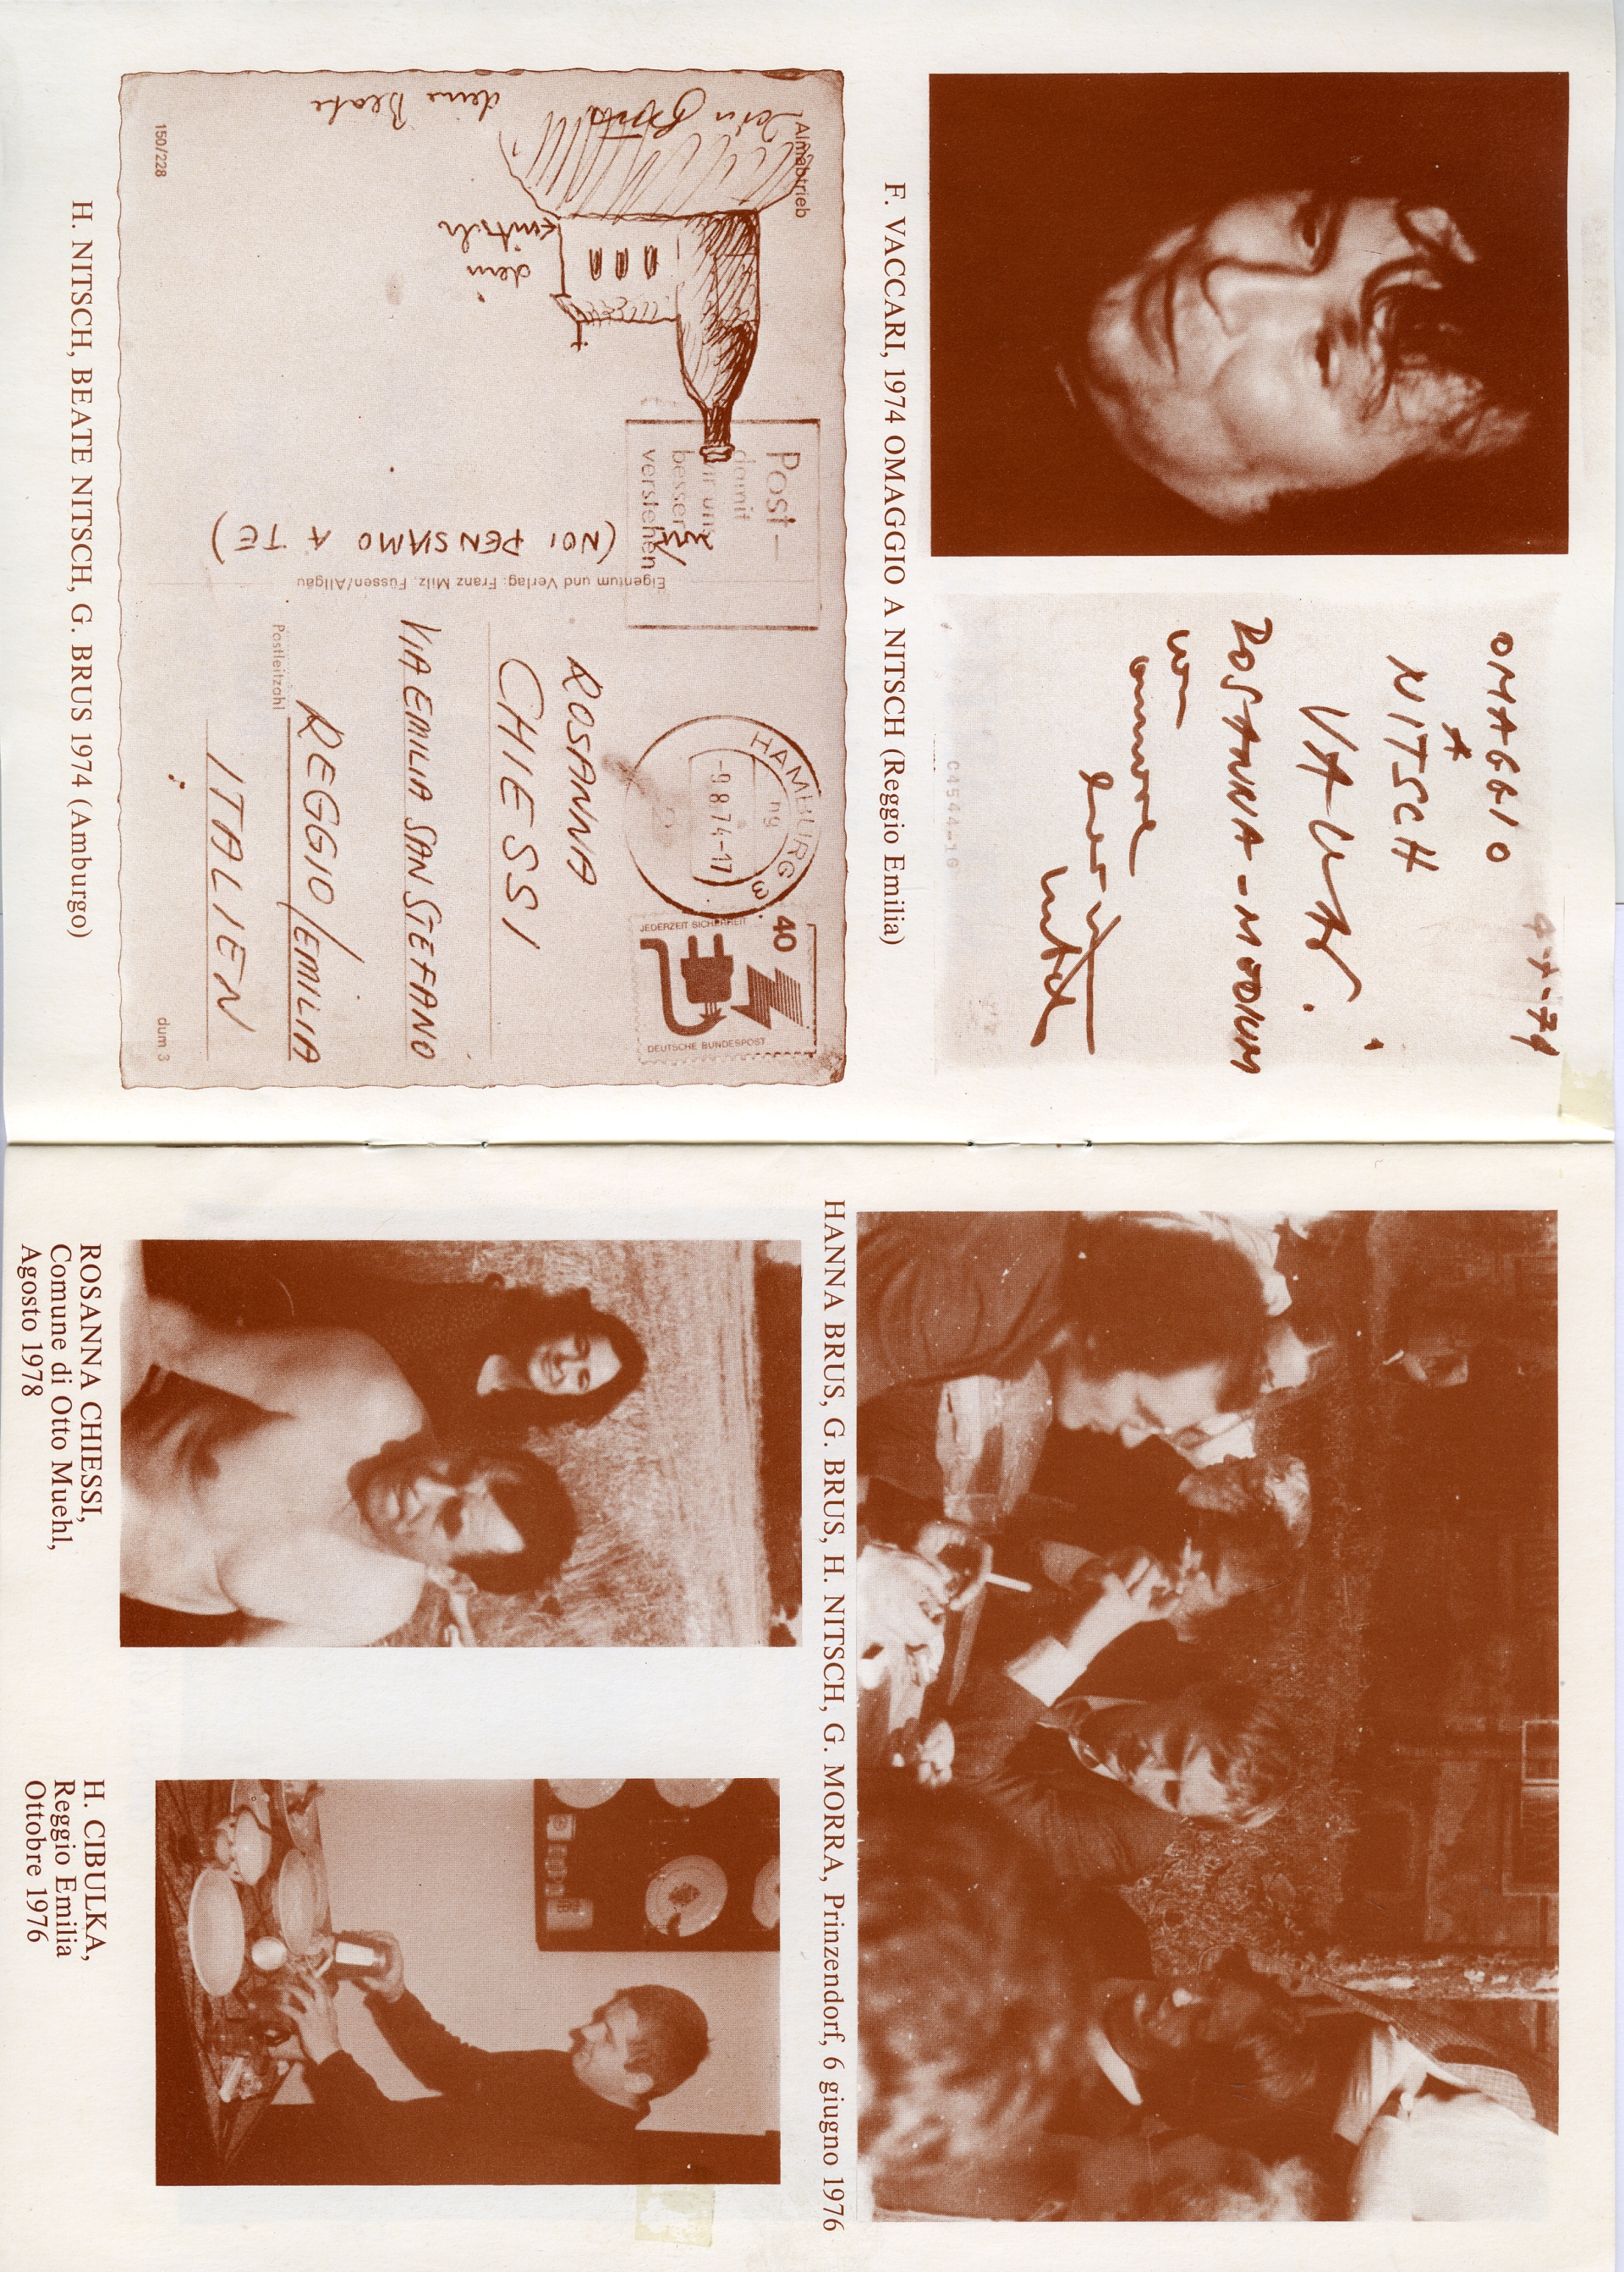 OMAGGIO
A
NITSCH
VACCARI
ROSANNA - MODENA
con
amore
F. VACCARI, 1974 OMAGGIO A NITSCH (Reggio Emilia)
Almabtrieb
dein
deine Beate
dein
nitsch
(NOI PENSIAMO A TE)
Post —
damit
wir uns
besser
verstehen
Eigentum und Verlag: Franz Milz, Füssen/Allgäu
HAMBURG 3
-9.8.74-17
ng
40
JEDERZEIT SICHERHEIT
DEUTSCHE BUNDESPOST
ROSANNA
CHIESSI
VIA EMILIA SAN STEFANO
Postleitzahl
REGGIO/EMILIA
ITALIEN
150/228
dum 3
H. NITSCH, BEATE NITSCH, G. BRUS 1974 (Amburgo)
HANNA BRUS, G. BRUS, H. NITSCH, G. MORRA, Prinzendorf, 6 giugno 1976
ROSANNA CHIESSI,
Comune di Otto Muehl,
Agosto 1978
H. CIBULKA,
Reggio Emilia
Ottobre 1976